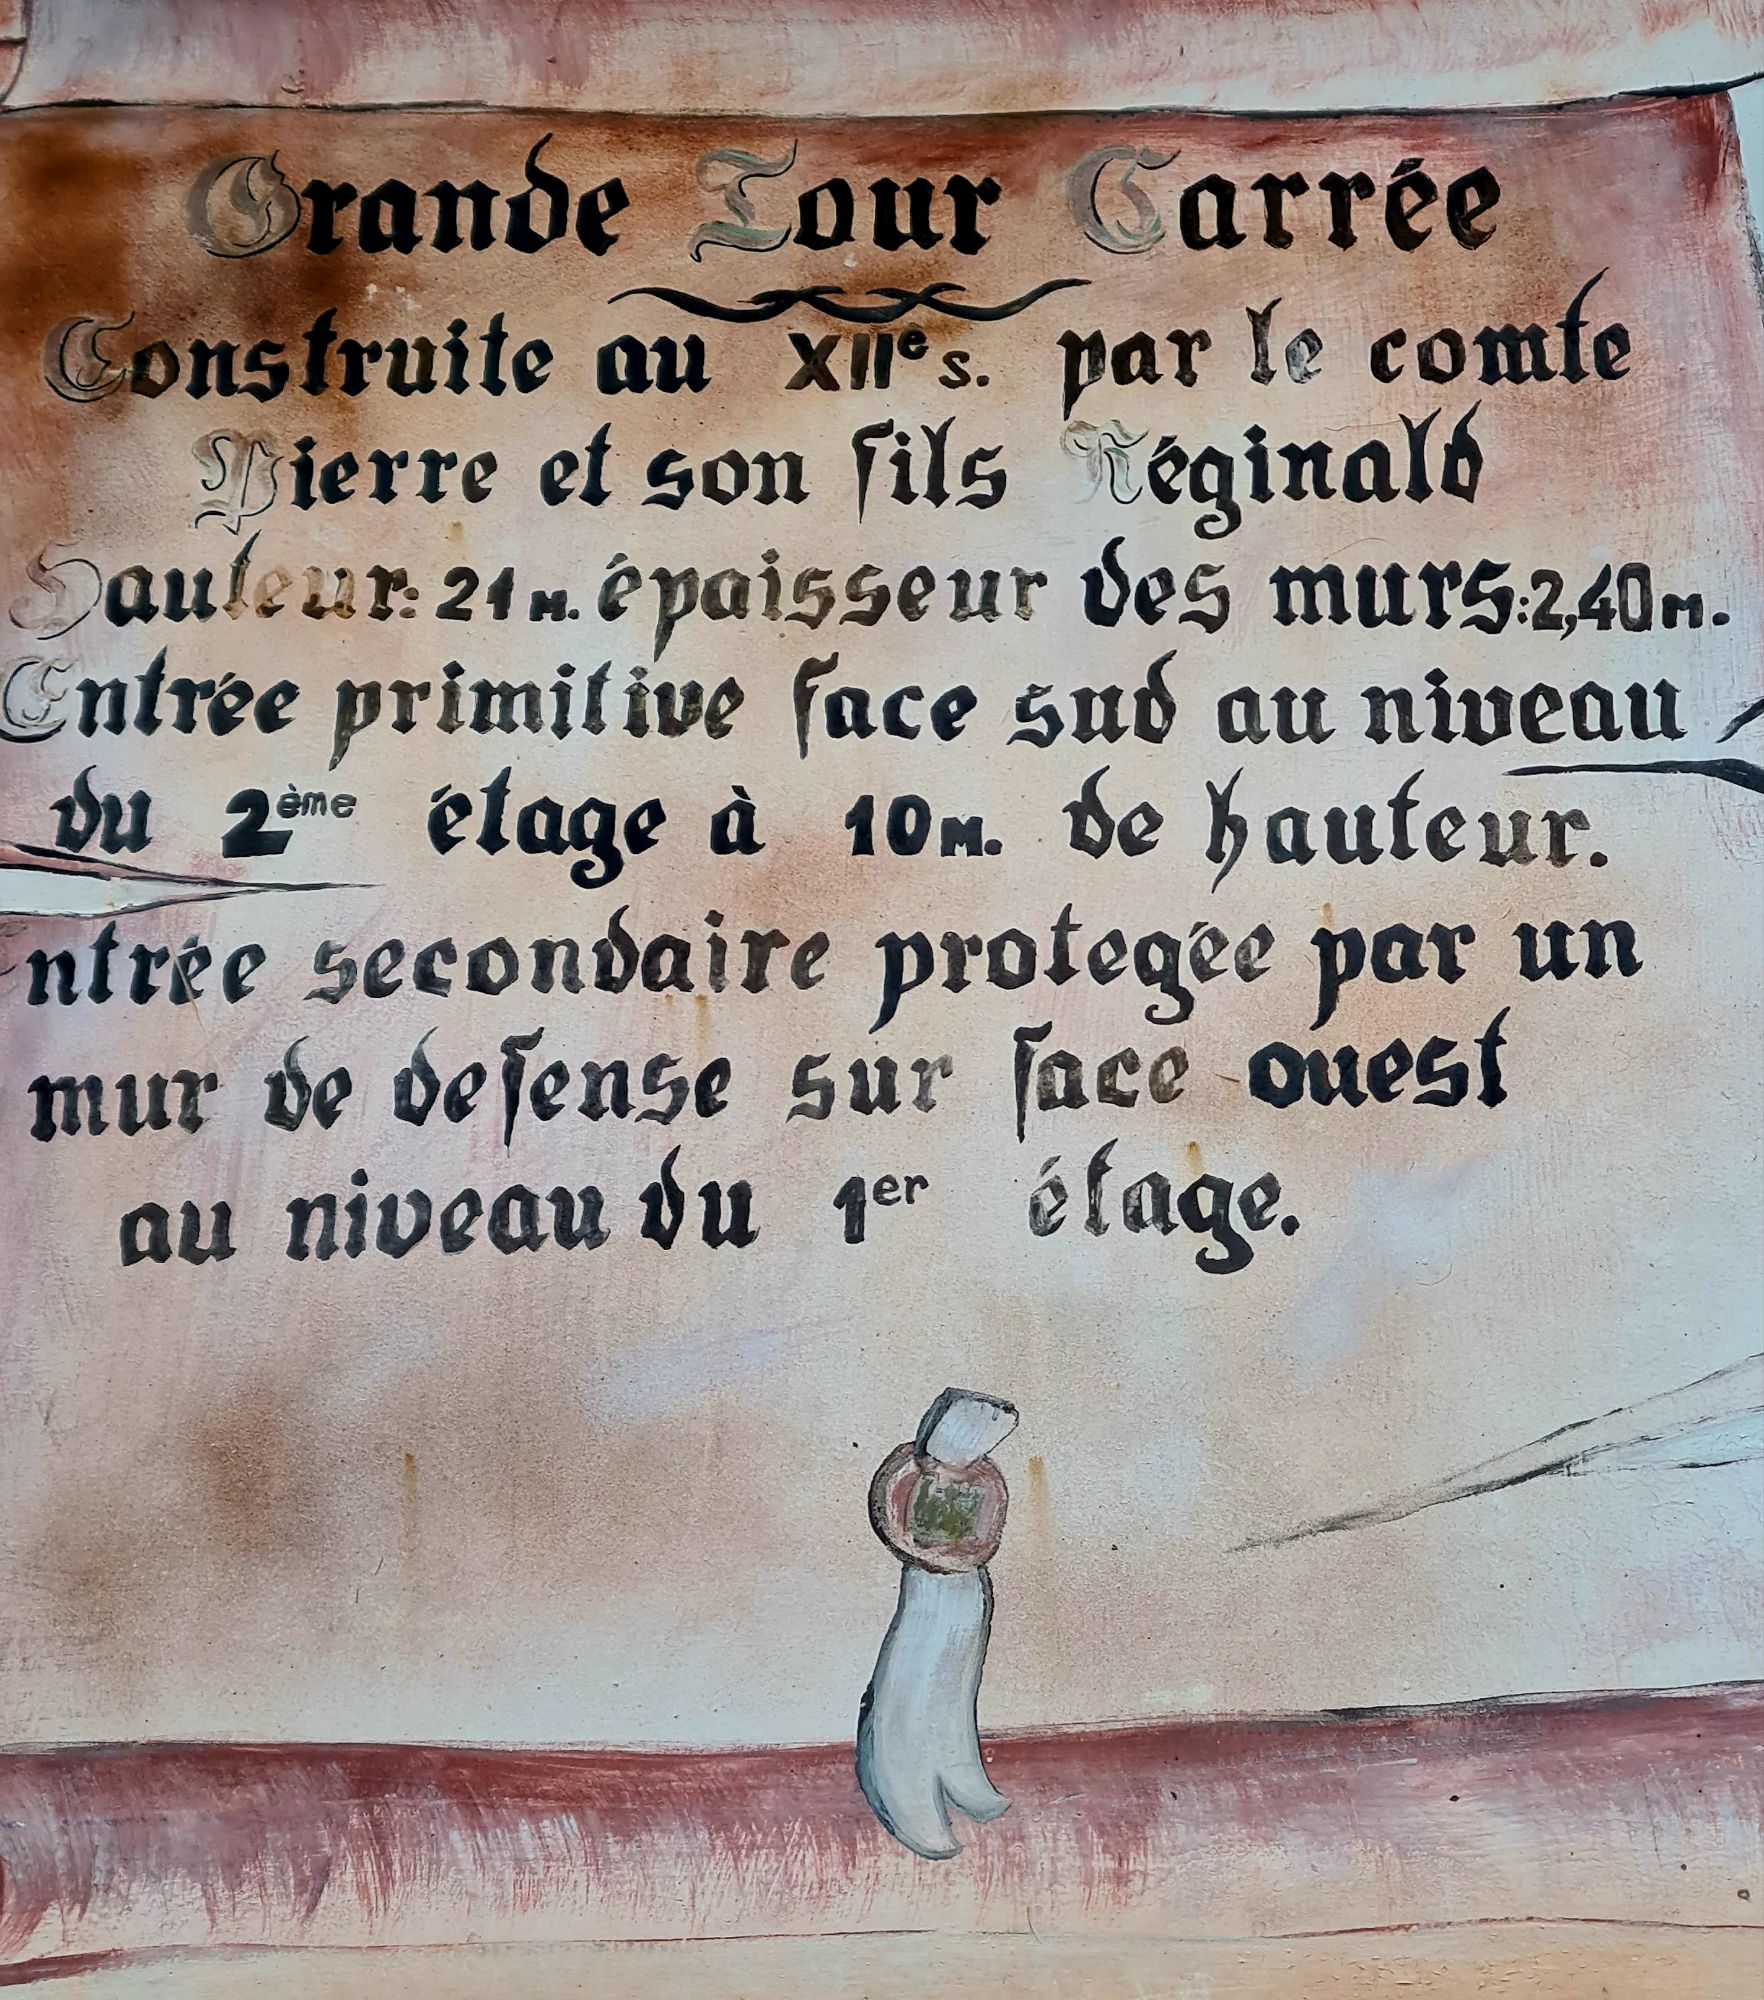 Grande Tour Carrée
Construite au XIIe s. par le comte
Pierre et son fils Réginald
Hauteur: 21 M. épaisseur des murs: 2,40 M.
Entrée primitive face sud au niveau
du 2ème étage à 10 M. de hauteur.
ntrée secondaire protegée par un
mur de defense sur face ouest
au niveau du 1er étage.